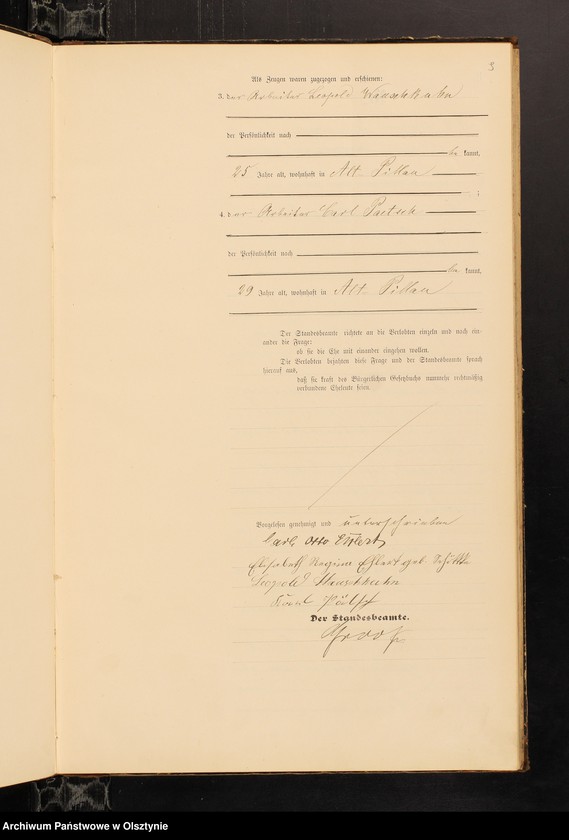 3
Als Zeugen waren zugezogen und erschienen:
3. der Arbeiter Leopold
der Persönlichkeit nach
be kannt,
25 Jahre alt, wohnhaft in Alt Pillau
;
4. der Arbeiter Carl Paetsch
der Persönlichkeit nach
be kannt,
29 Jahre alt, wohnhaft in Alt Pillau
Der Standesbeamte richtete an die Verlobten einzeln und nach ein-
ander die Frage:
ob sie die Ehe mit einander eingehen wollen.
Die Verlobten bejahten diese Frage und der Standesbeamte sprach
hierauf aus,
daß sie kraft des Bürgerlichen Gesetzbuchs nunmehr rechtmäßig
verbundene Eheleute seien.
Vorgelesen, genehmigt und unterschrieben
Carl Otto Ehlert
Elisabeth Regina Ehlert geb.
Leopold
Der Standesbeamte.
Archiwum Państwowe w Olsztynie